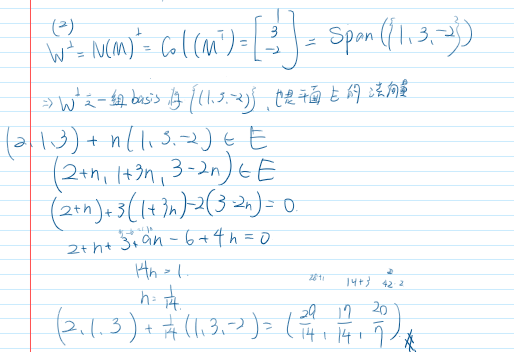 (2)
W^⊥ = N(M)^⊥ = Col(M^T) = [1 3 -2] = Span({1,3,-2})
⇒ W^⊥ 之一組 basis 為 {(1,3,-2)}, 也是平面 E 的法向量
(2,1,3) + n(1,3,-2) ∈ E
(2+n, 1+3n, 3-2n) ∈ E
(2+n)+3(1+3n)-2(3-2n)=0
2+n+3+9n-6+4n=0
14n=1.
n=1/14.
28+1 14+3 42-2
(2,1,3)+1/14(1,3,-2)=(29/14, 17/14, 20/7)